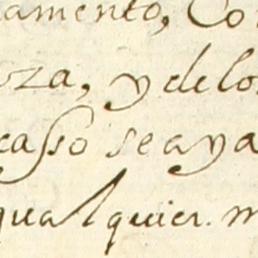 amento, Co
za, y delos
casso se aya
qualquier. m